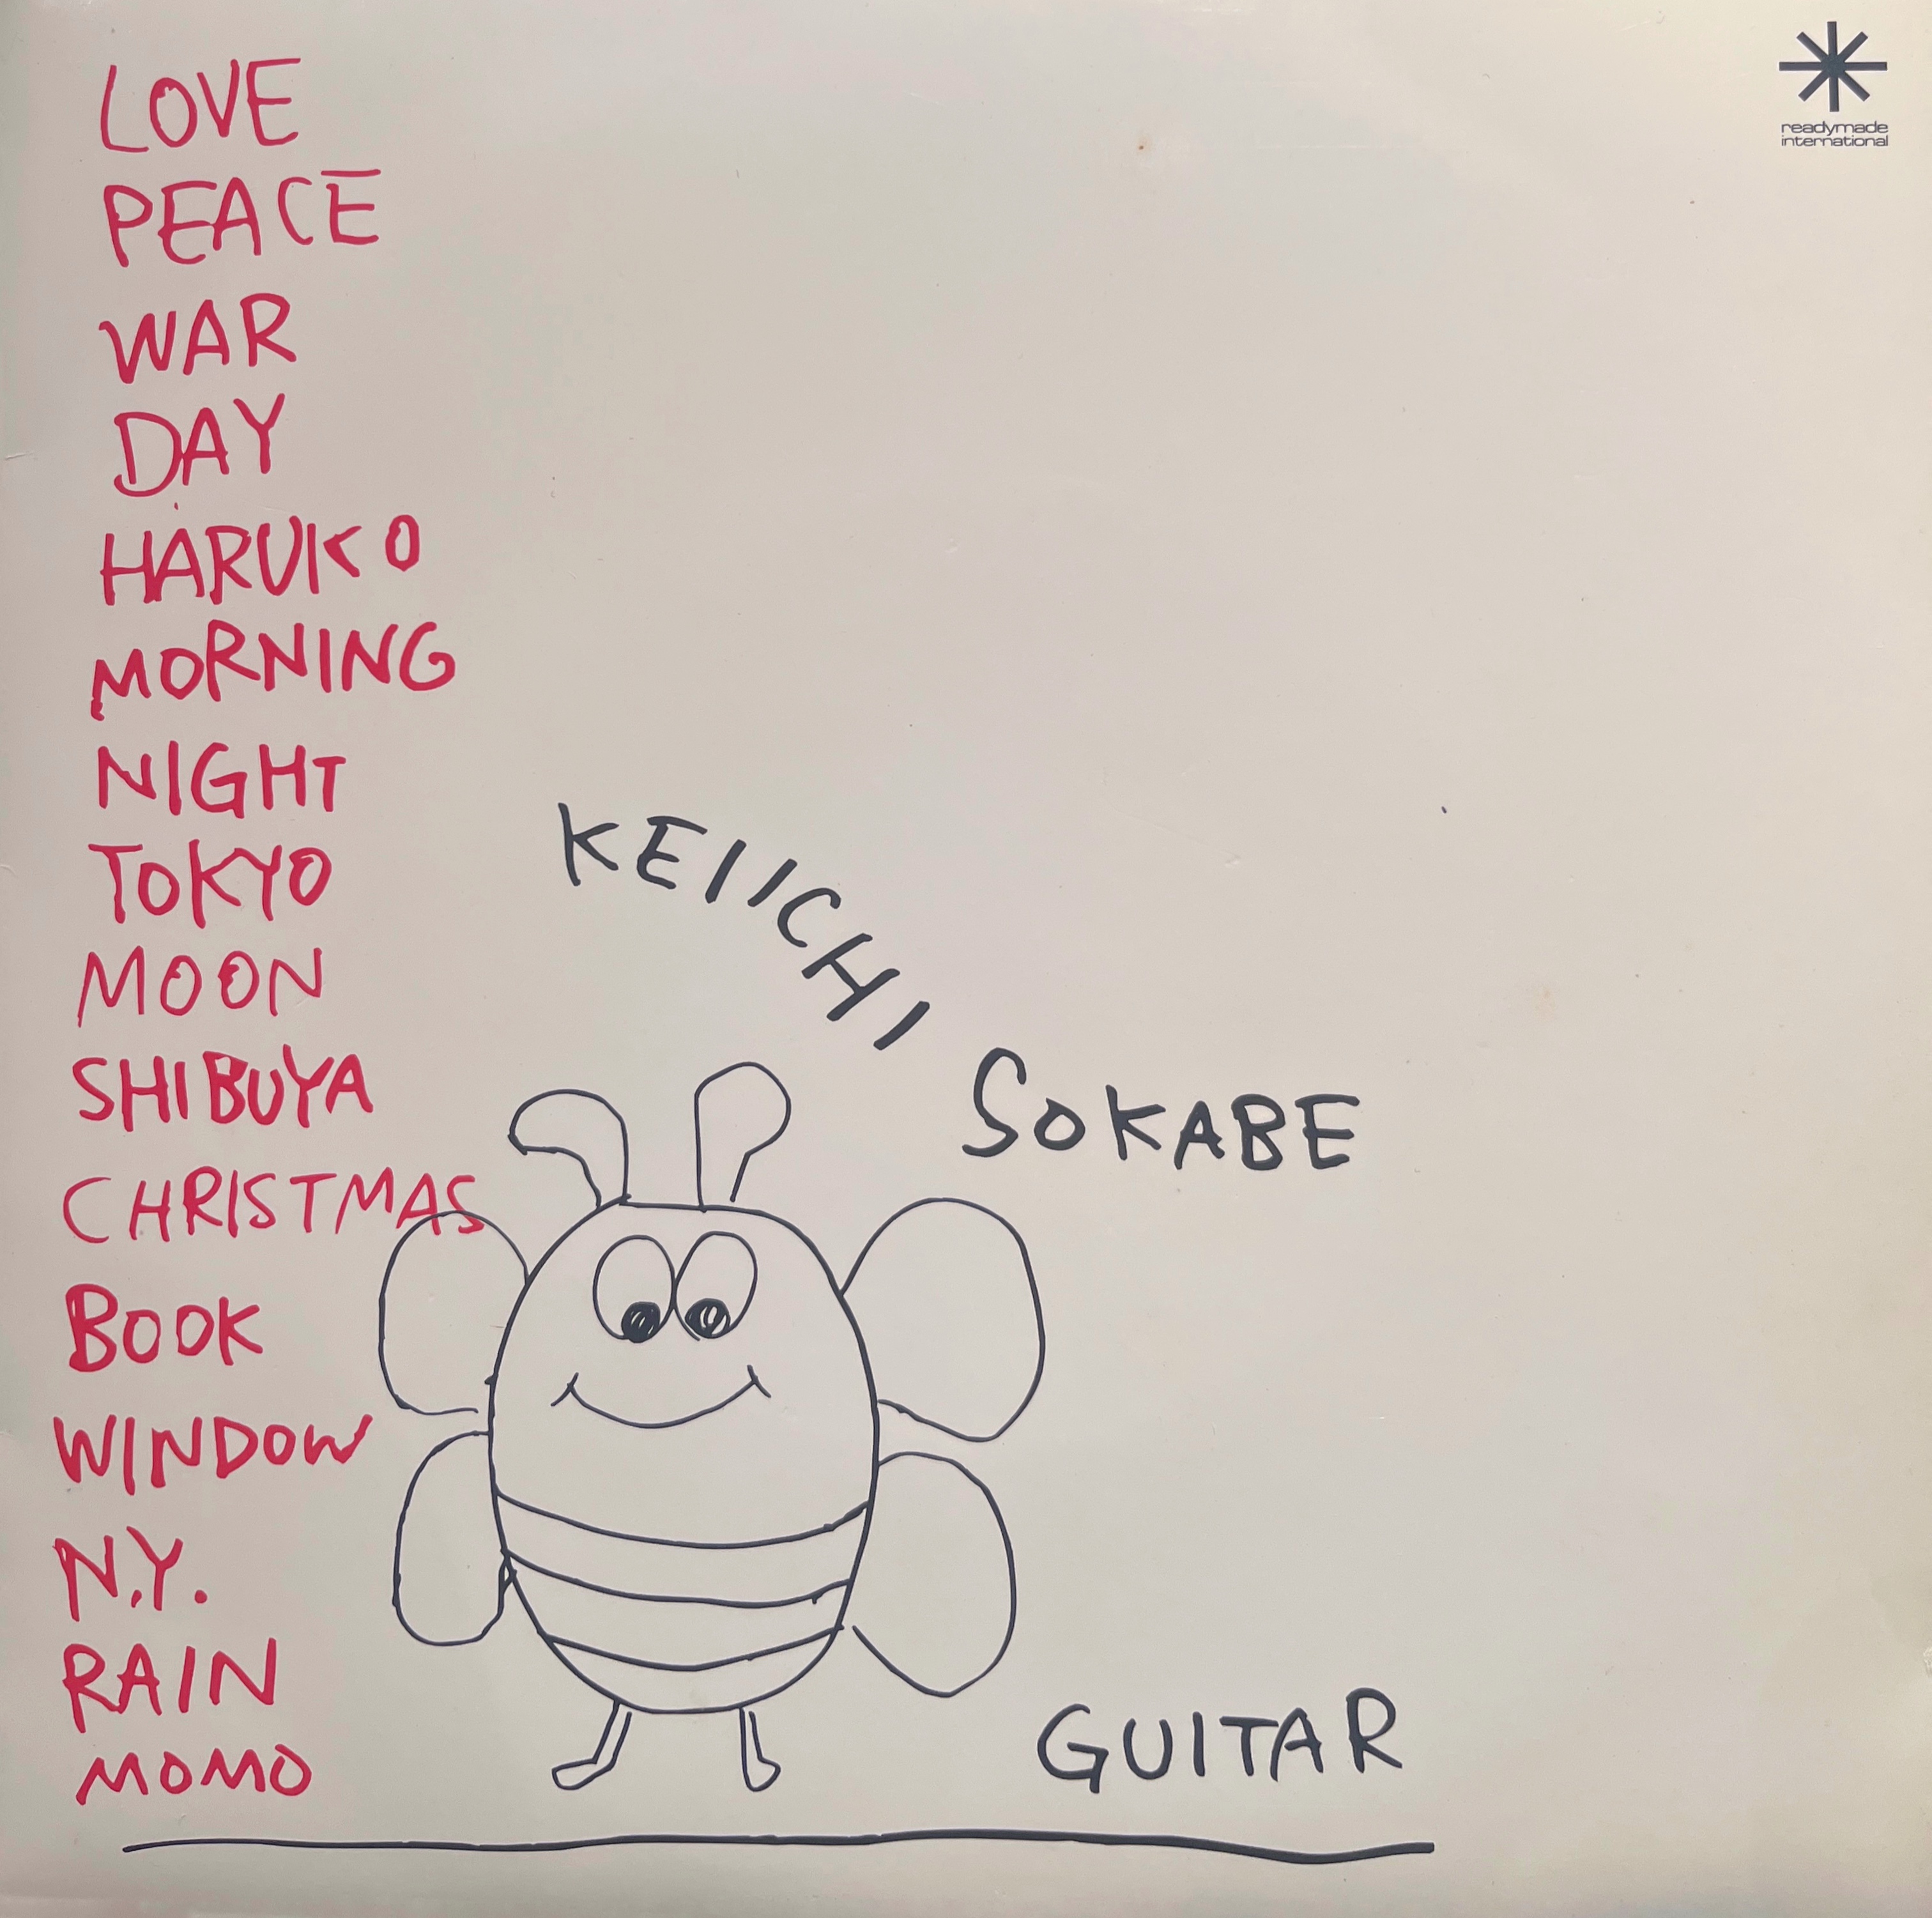 LOVE
PEACE
WAR
DAY
HARUKO
MORNING
NIGHT
TOKYO
MOON
SHIBUYA
CHRISTMAS
BOOK
WINDOW
N.Y.
RAIN
MOMO
KEIICHI SOKABE
GUITAR
readymade
international